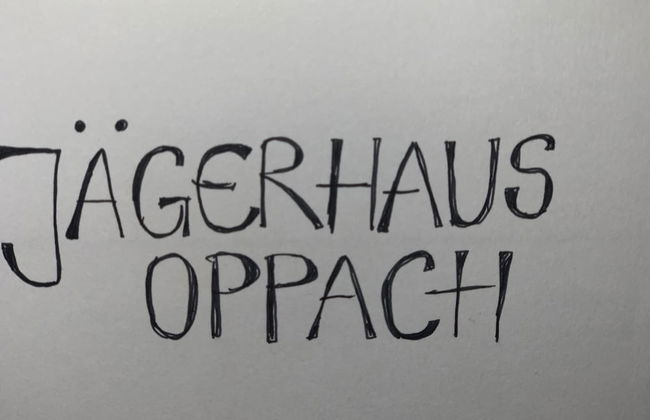 JÄGERHAUS
OPPACH